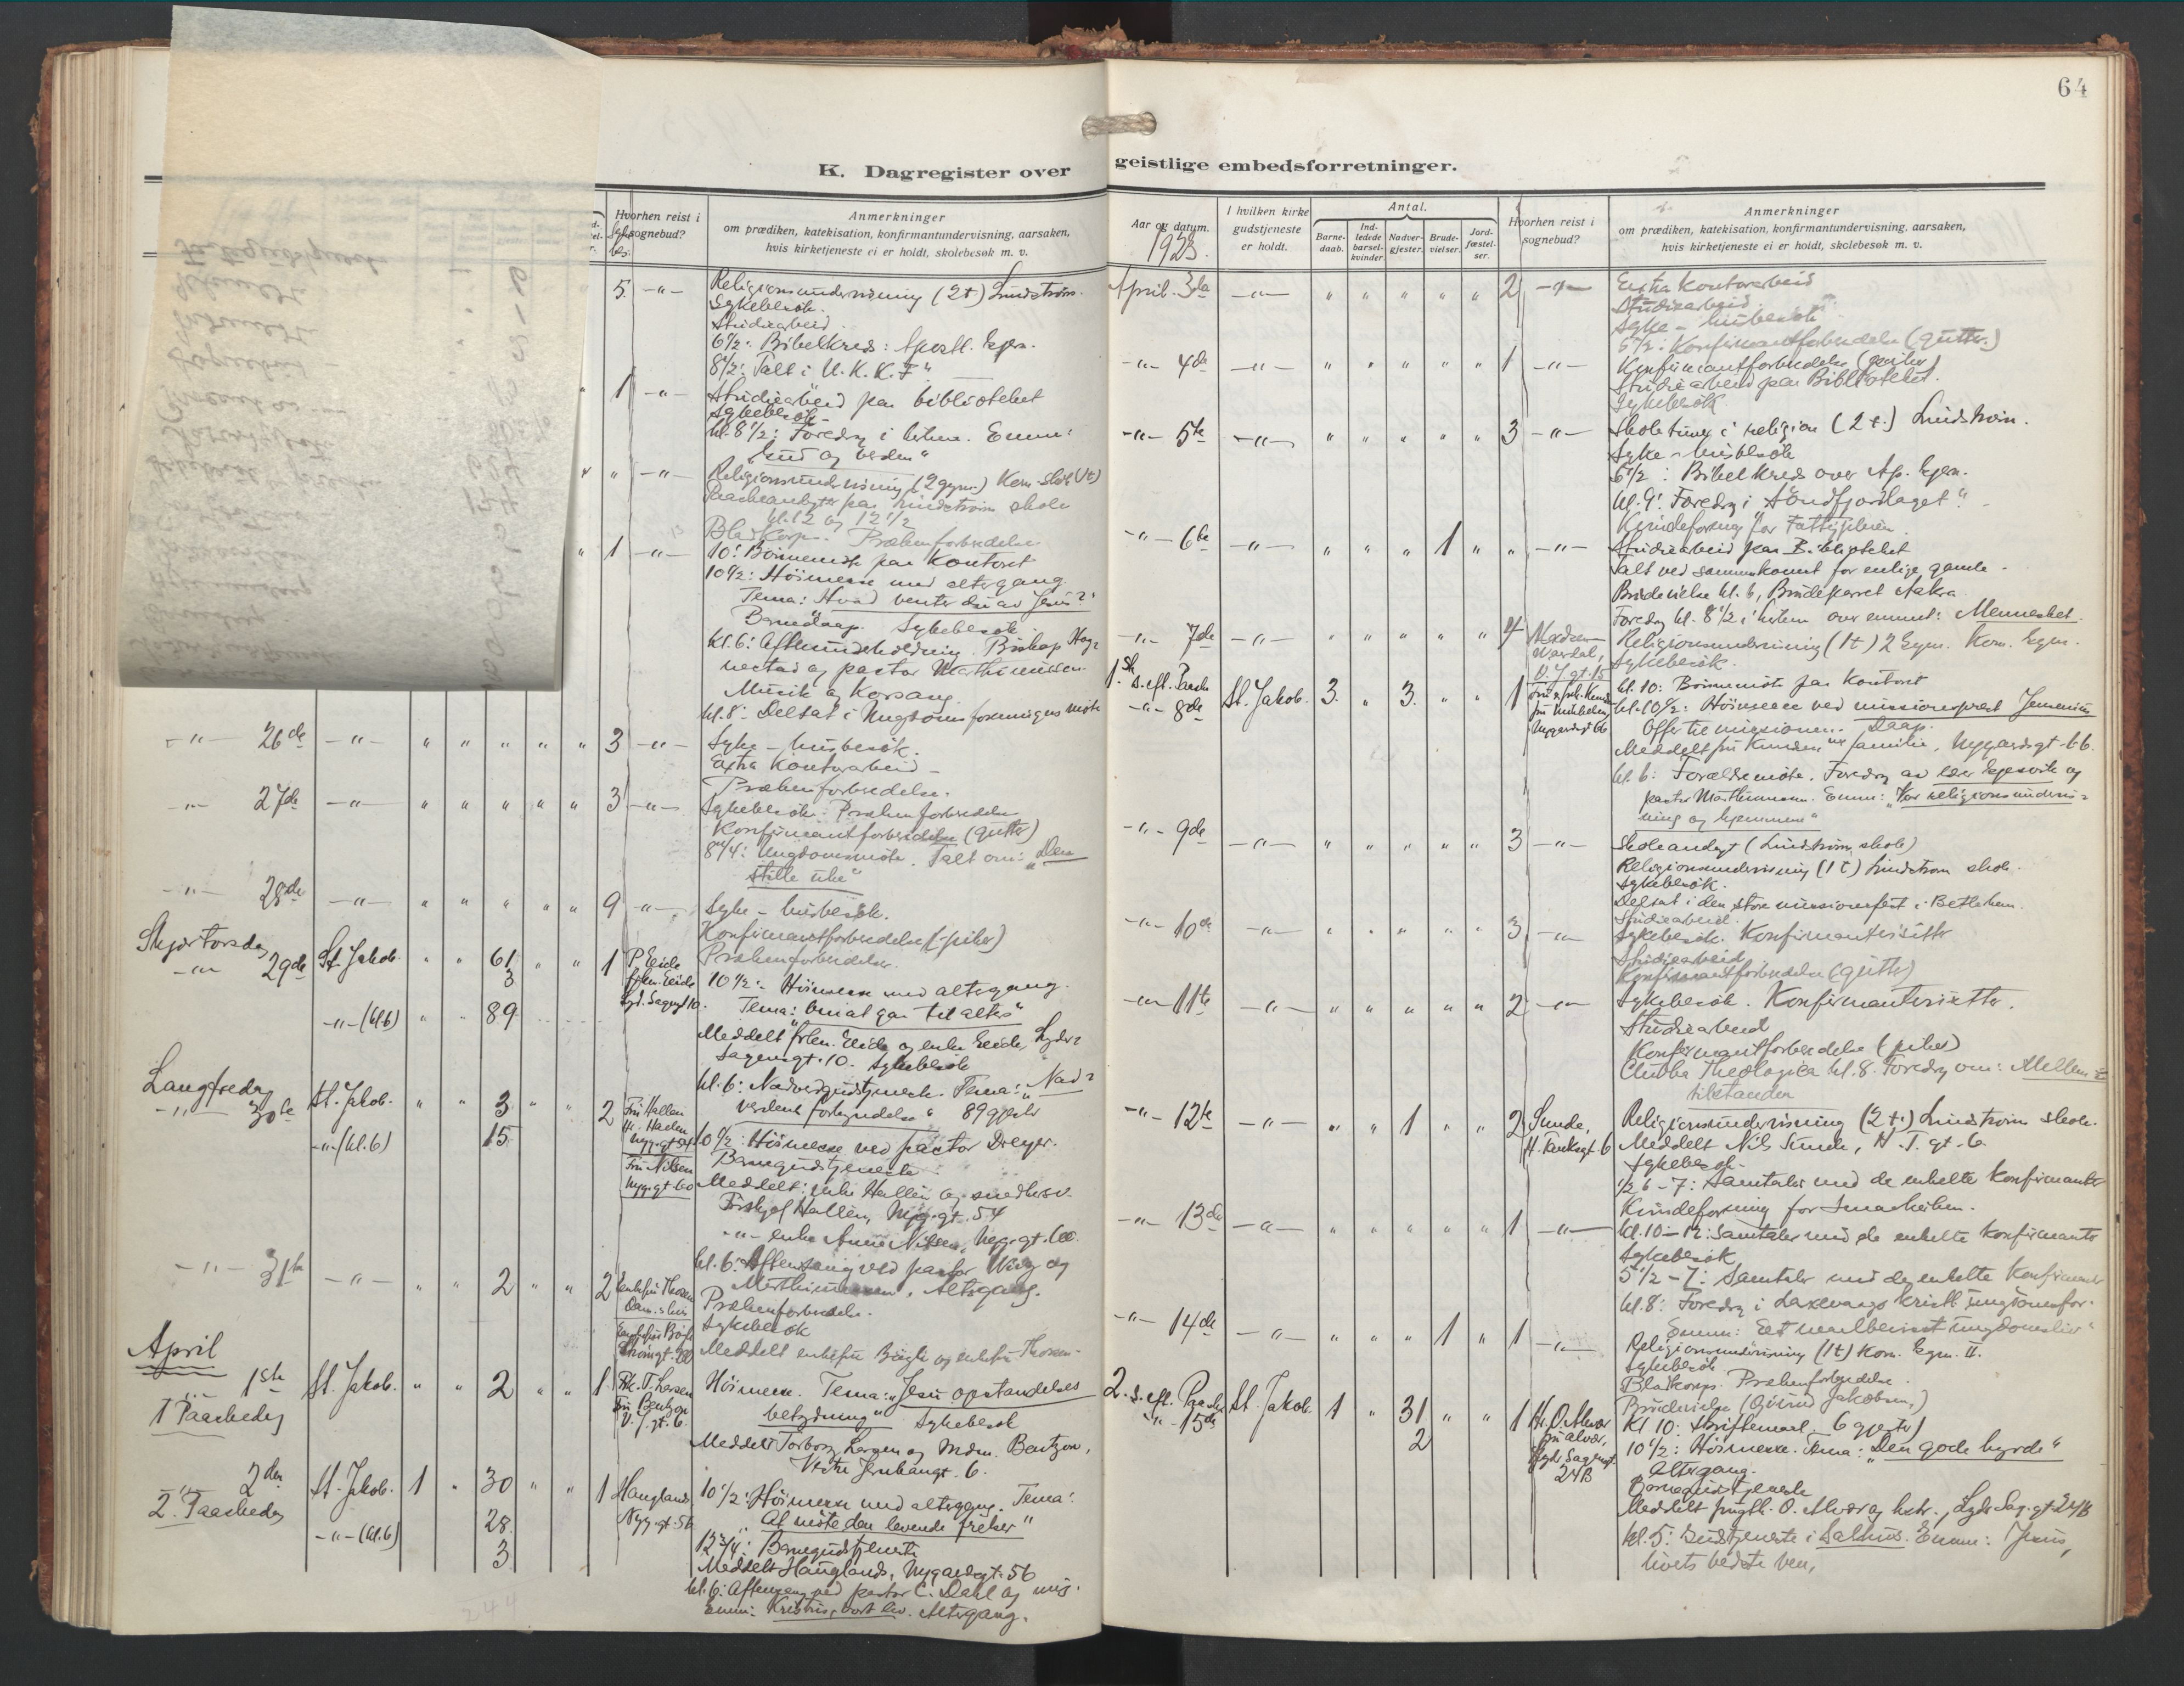 64
K. Dagregister over geistlige embedsforretninger.
Hvorhen reist i sognebud?
Anmerkninger
om prædiken, katekisation, konfirmantundervisning, aarsaken,
hvis kirketjeneste ei er holdt, skolebesøk m. v.
5. -"- Religionsundervisning (2t) Lindstrøm.
Sykebesøk.
Studiearbeid.
6½: Bibelkreds: Apostl. Gjern.
8½: Talt i U. K. K. F"
" 1 -"- Studiearbeid paa biblioteket
Sykebesøk
kl. 8½: Foredrag i kirken. Emne:
"Gud og verden"
" " -"- Religionsundervisning (2 gym.) Kom. skole (1t)
Paaskeandagter paa Lindstrøm skole
kl. 12 og 12½
Præken forberedelse
" 1 -"- 10: Bønnemøte paa Kontoret
10½: Høimesse med altergang.
Tema: Hvad venter du av Jesus?
Barnedaap. Sykebesøk.
kl. 6: Aftenunderholdning. Biskop Hog-
nestad og pastor Marthinussen.
Musik og Korsang
kl. 8: Deltat i Ungdomsforeningens møte
-"- 26de -"- " " " " " 3 -"- Syke- husbesøk.
Extra Kontorarbeid
Prækenforberedelse.
-"- 27de -"- " " " " " 3 -"- Sykebesøk. Prækenforberedelse
Konfirmantforberedelse (gutter)
8¼: Ungdomsmøte. Talt om: "Den
stille uke"
-"- 28de -"- " " " " " 9 -"- Syke- husbesøk.
Konfirmantforberedelse (piker)
Prækenforberedelse.
Skjærtorsdag
-"- 29de St. Jakob. " " 61 " " 1 P. Eide
3
frken. Eide
Lyd. Sagengt 10.
10½: Høimesse med altergang.
Tema: "Om at gaa til alters"
-"- (kl. 6) " " 89
Meddelt frken. Eide og enke Eide, Lyder
Sagensgt. 10. Sykebesøk
kl. 6: Nadverdgudstjeneste. Tema: "Nad-
verdens forkyndelse" 89 gjester
Langfredag
-"- 30te St. Jakob. " " 3 " " 2 Fru Hallen
Hr. Hallen
Nyg. gt 54
-"- (kl. 6) 15
Fru Nilsen
Nyg. gt 60
10½: Høimesse ved pastor Dreyer.
Barnegudstjeneste
Meddelt: enke Hallén og snedkersv.
Hallén, Nyg. gt. 54
-"- enke Anne Nilsen, Nyg. gt. 60.
kl. 6: Aftensang ved pastor Wiig og
Marthinussen. Altergang.
-"- 31te -"- " " 2 " " 2 Enkefru Thorsen
Prækenforberedelse.
Sykebesøk
Meddelt enkefru Bøgh og enkefru Thorsen
April
1ste St. Jakob. " " 2 " " 1 Frk. T. Larsen
1. Paaskedag
Fru Bentzon
V. J. gt. 6.
Høimesse. Tema: "Jesu opstandelses
betydning" Sykebesøk
Meddelt Torborg Larsen og Mdm. Bentzon,
Vestre Jernbanegt. 6.
2den St. Jakob. 1 " 30 " " 1 Hauglands
2. Paaskedag
Nyg. gt. 56
28
-"- (kl. 6) 3
10½: Høimesse med altergang. Tema:
"At møte den levende frelser"
12¾: Barnegudstjeneste
Meddelt Hauglands, Nygaardsgt. 56
kl. 6: Aftensang ved pastor C. Dahl og mig.
Emne: Kristus, vort liv. Altergang.
Aar og datum.
I hvilken kirke gudstjeneste er holdt.
Antal.
Barne-daab.
Ind-ledede barsel-kvinder.
Nadver-gjester.
Brude-vielser.
Jord-fæstel-ser.
Hvorhen reist i sognebud?
Anmerkninger
om prædiken, katekisation, konfirmantundervisning, aarsaken,
hvis kirketjeneste ei er holdt, skolebesøk m. v.
1923.
April. 3die -"- " " " " " 2 -"- Extra Kontorarbeid
Studiearbeid
Syke- husbesøk
5½: Konfirmantforberedelse (gutter)
-"- 4de -"- " " " " " 1 -"- Konfirmantforberedelse (piker)
Studiearbeid paa Biblioteket.
Sykebesøk
-"- 5te -"- " " " " " 3 -"- Skoletimer i religion (2t.) Lindstrøm.
Syke- husbesøk
6½: Bibelkreds over Ap. Gjern.
kl. 9: Foredrag i "Søndfjordlaget"
Kvindeforening for Fattigpleien
-"- 6te -"- " " " 1 " " -"- Studiearbeid paa Biblioteket
Talt ved sammenkomst for enlige gamle.
Brudevielse kl. 6, Brudeparret Aakra
Foredrag kl. 8½ i kirken over emnet: Mennesket.
-"- 7de -"- " " " " " 4
V. J. gt. 15
Religionsundervisning (1t) 2 Gym. Kom. Gym.
Sykebesøk.
1. S. eft. Paaske
-"- 8de St. Jakob. 3. " 3. " " 1
Nygaardsgt 66
kl. 10: Bønnemøte paa Kontoret
kl. 10½: Høimesse ved missionsprest Jensenius
Offer til missionen. Daap.
Meddelt fru Knudsen m/ familie, Nygaardsgt. 66.
kl. 6: Forældremøte. Foredrag av lærer Gjesvik og
pastor Marthinussen. Emne: "Vor religionsundervis-
ning og hjemmene"
-"- 9de -"- " " " " " 3 -"- Skoleandagt (Lindstrøm skole)
Religionsundervisning (1t) Lindstrøm skole.
Sykebesøk.
Deltat i den store missionsfest i Betlehem.
-"- 10de -"- " " " " " 3 -"- Studiearbeid.
Sykebesøk. Konfirmantvisitter
Studiearbeid
Konfirmantforberedelse (gutter)
-"- 11te -"- " " " " " 2 -"- Sykebesøk. Konfirmantvisitter.
Studiearbeid
Konfirmantforberedelse (piker)
Clubba Theologica kl. 8. Foredrag om: Mellem-
tilstanden
-"- 12te -"- " " 1 " " 2 Sunde,
H. Tanksgt. 6
Religionsundervisning (2t.) Lindstrøm skole.
Meddelt Nils Sunde, H. T. gt. 6.
Sykebesøk.
½6-7: Samtaler med de enkelte Konfirmanter
Kvindeforening for Smaakirken.
-"- 13de -"- " " " " " 1 -"- kl. 10-12: Samtaler med de enkelte konfirmanter
Sykebesøk
5½-7: Samtaler med de enkelte Konfirmanter
kl. 8: Foredrag i Laxevaags kristl. ungdomsfor.
Emne: "Et maalbevisst ungdomsliv"
-"- 14de -"- " " " 1 " 1 -"- Religionsundervisning (1t) Kom. Gym. II.
Sykebesøk
Prækenforberedelse.
Brudevielse (Øivind Jakobsen,)
2. S. eft. Paaske
-"- 15de St. Jakob. 1 " 31 " " 1 Hr. O. Alvær
2
fru Alvær,
Lyder Sagensgt.
24B
Kl 10: Skriftemaal (6 gjester)
10½: Høimesse. Tema: "Den gode hyrde"
Altergang.
Barnegudstjeneste
Meddelt O. Alvær og hstr., Lyder Sag. gt 24B
kl. 5: Gudstjeneste i Salhus. Emne: Jesus,
livets bedste ven,